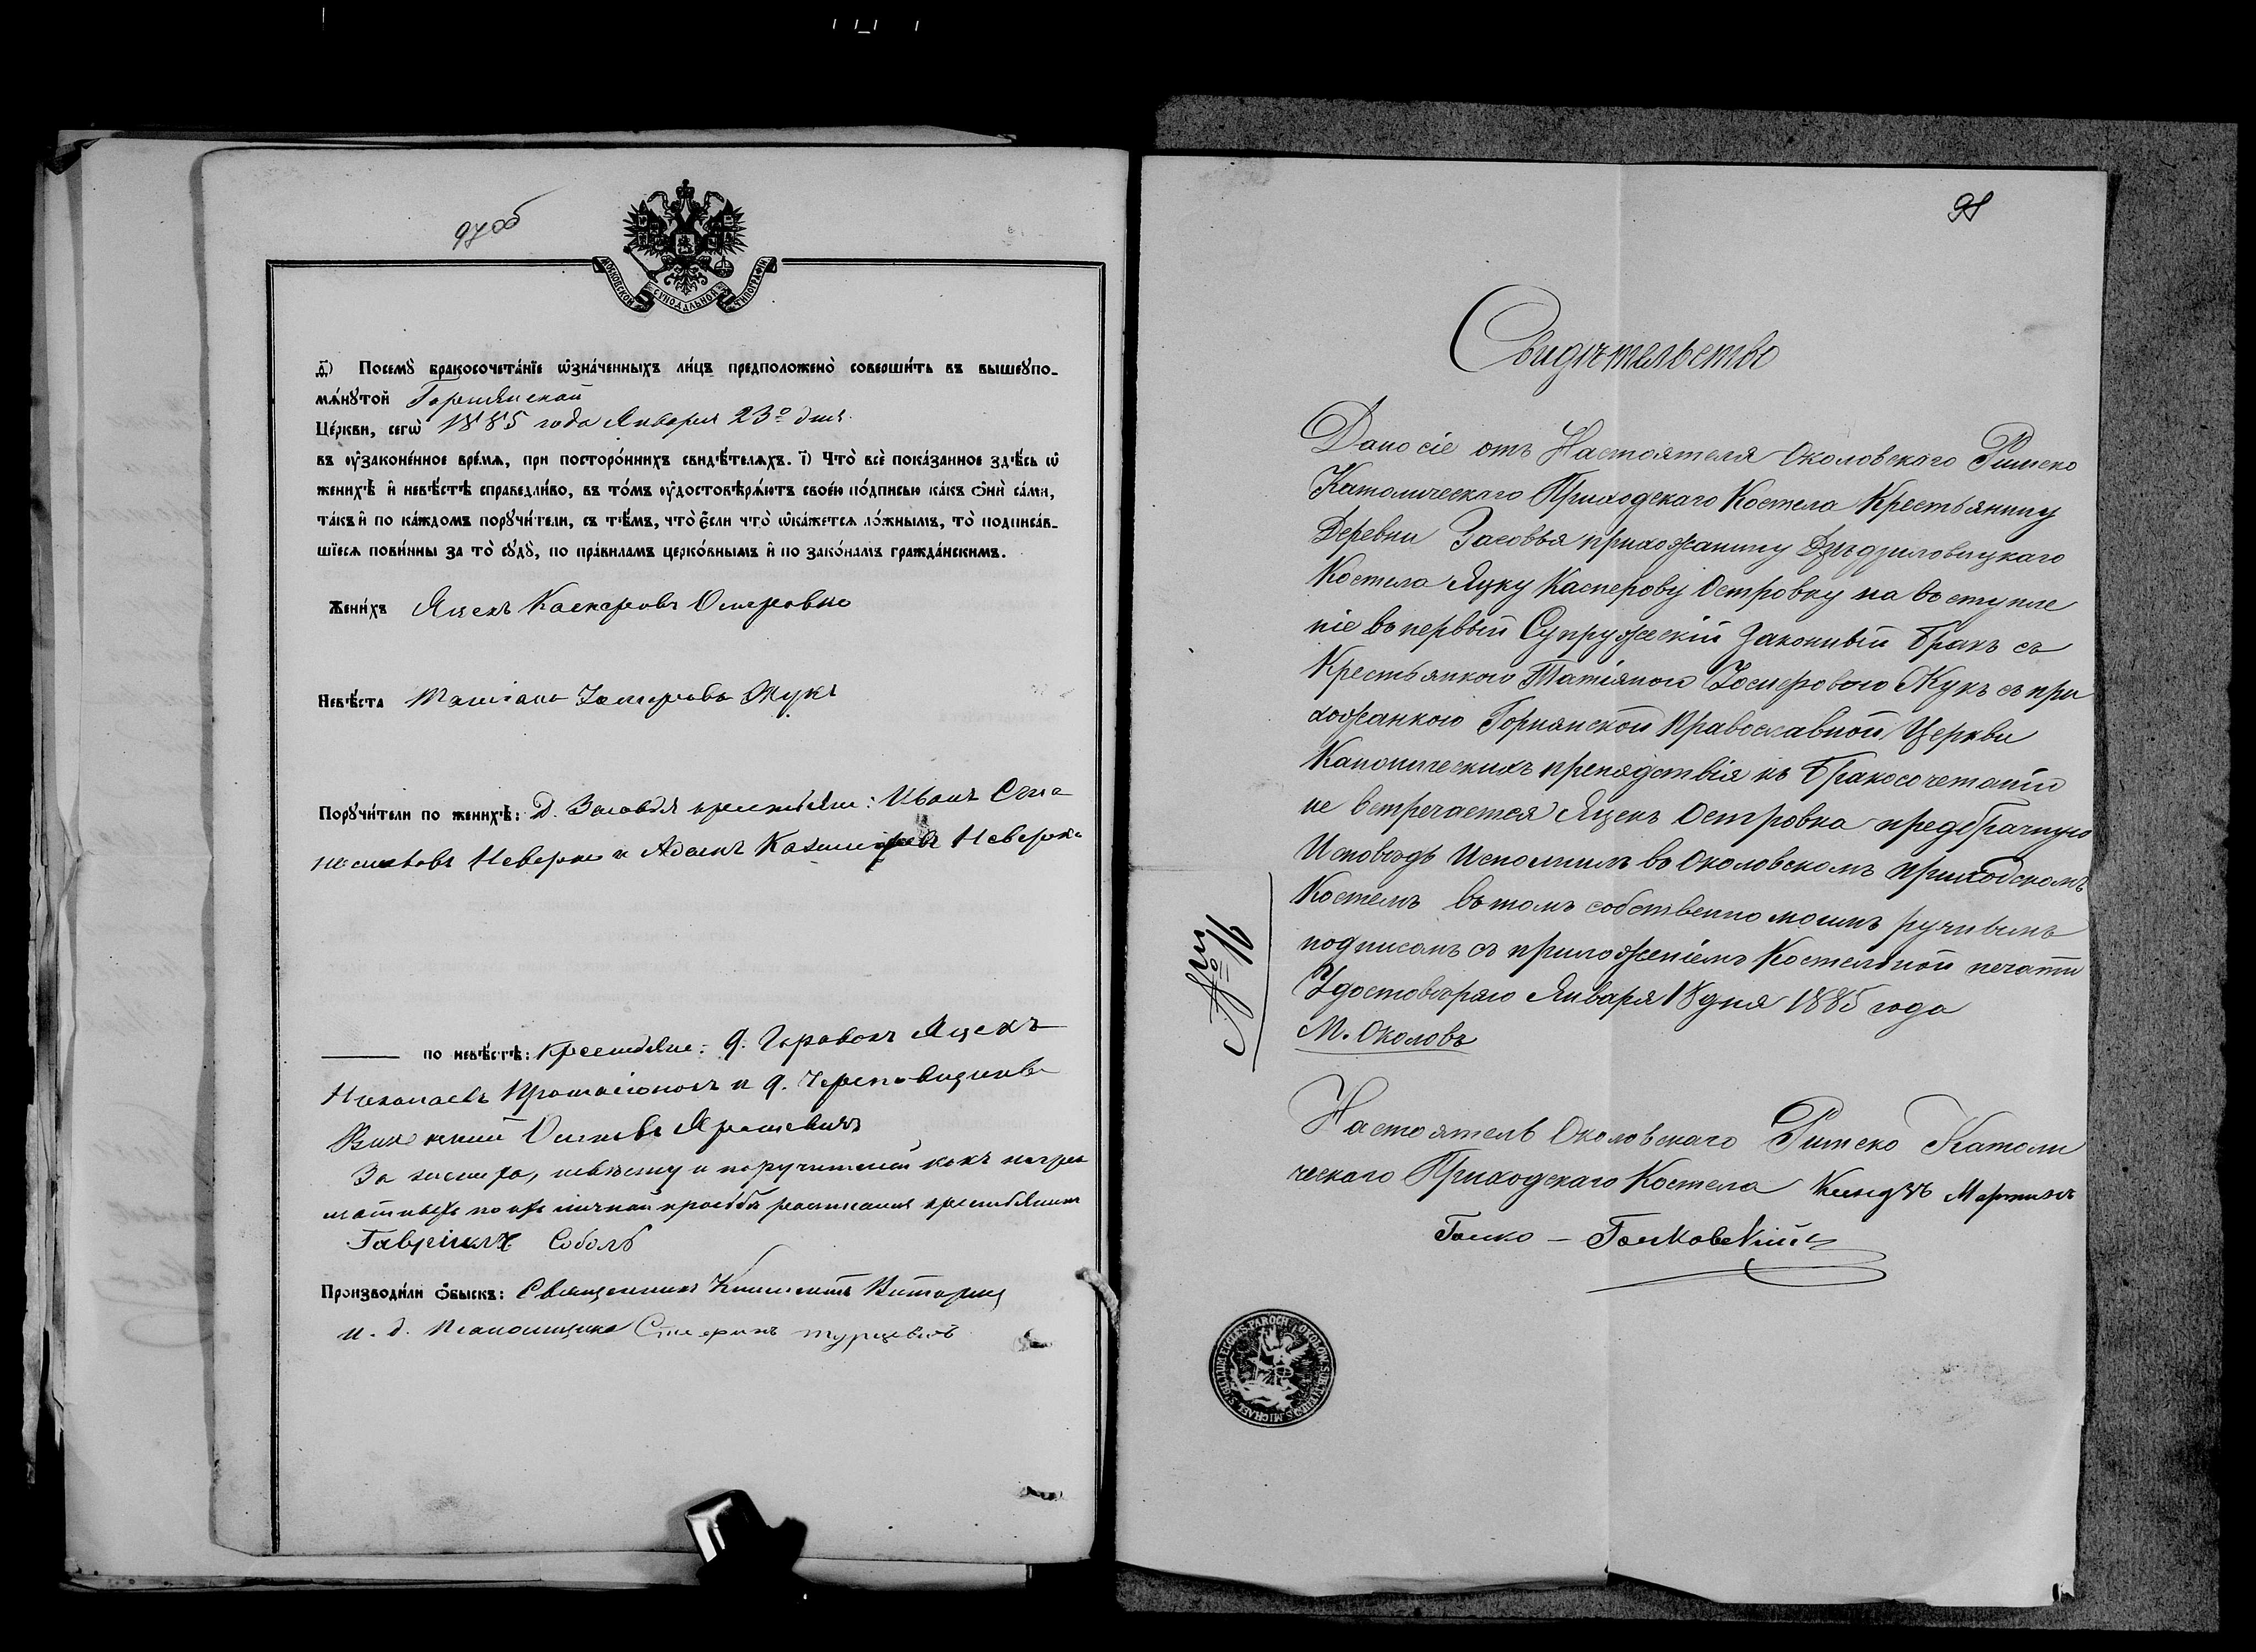 97об
МОСКОВСКОЙ СѴНОДАЛЬНОЙ ТИПОГРАФІИ
Посемꙋ̀ бракосочета́нїе ѡ҆зна́ченныхъ ли́цъ предположено̀ соверши́ть въ вышеꙋпо-
мѧ́нꙋтой Горнянской
Це́ркви, сегѡ̀ 1885 года Января 23º дня
въ ᲂу҆зако́ненное вре́мѧ, при посторо́ннихъ свидѣ́телѧхъ. і҃) Что̀ всѐ пока́занное здѣ́сь ѡ҆
женихѣ̀ и҆ невѣ́стѣ справедли́во, въ то́мъ ᲂу҆достовѣрѧ́ютъ свое́ю по́дписью ка́къ ѻ҆нѝ са́ми,
та́къ и҆ по ка́ждомъ порꙋчи́тели, съ тѣ́мъ, что̀ є҆́сли что̀ ѡ҆ка́жетсѧ ло́жнымъ, то̀ подписа́в-
шїесѧ пови́нны за то̀ сꙋдꙋ̀, по пра́виламъ церко́внымъ и҆ по зако́намъ гражда́нскимъ.
Жени́хъ Яцекъ Касперовъ Островко
Невѣ́ста Татіана Іосифова Жукъ
Порꙋчи́тели по женихѣ̀: Д. Засовья крестьяне: Иванъ
Неверко и Адамъ Казиміровъ Неверко
по невѣ́стѣ: крестьяне: д. Яцекъ
Николаевъ и д.
Осиповъ
За жениха, невѣсту и поручителей какъ негра
мотныхъ по ихъ личной просьбѣ росписался крестьянинъ
Гавріилъ Соболь
Производи́ли ѻ҆́быскъ: Священникъ Климентъ
и. д. псаломщика Стефанъ Турцевичъ
98
Свидѣтельство
Дано сіе отъ Настоятеля Околовскаго Римско
Католическаго Приходскаго Костела Крестьянину
Деревни Засовья прихожанину Дзѣдзиловицкаго
Костела Яцку Касперову Островку на вступле
ніе въ первый Супружескій Законный Бракъ съ
Крестьянкою Татіяною Іосифовою Жукъ съ при
хожанкою Горнянской Православной Церкви
Каноническихъ препядствія къ Бракосочетанію
не встречается Яцекъ Островка предбрачную
Исповѣдь Исполнилъ въ Околовскомъ приходскомъ
Костелѣ въ томъ собственно моимъ ручнымъ
подписомъ съ приложеніемъ Костельной печати
Удостовѣряю Января 18 дня 1885 года
М. Околовъ
№ 16
Настоятель Околовскаго Римско Католи
ческаго Приходскаго Костела Ксендзъ Мартинъ
Голко – Голковскій
SIGILLUM ECCLES. PAROCH. OKOLOW. S. MICHAEL